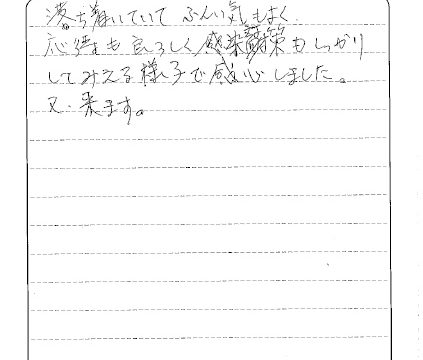 落ち着いていて ふんい気もよく、
応待も良ろしく 感染対策もしっかり
してみえる様子で感心しました。
又、来ます。